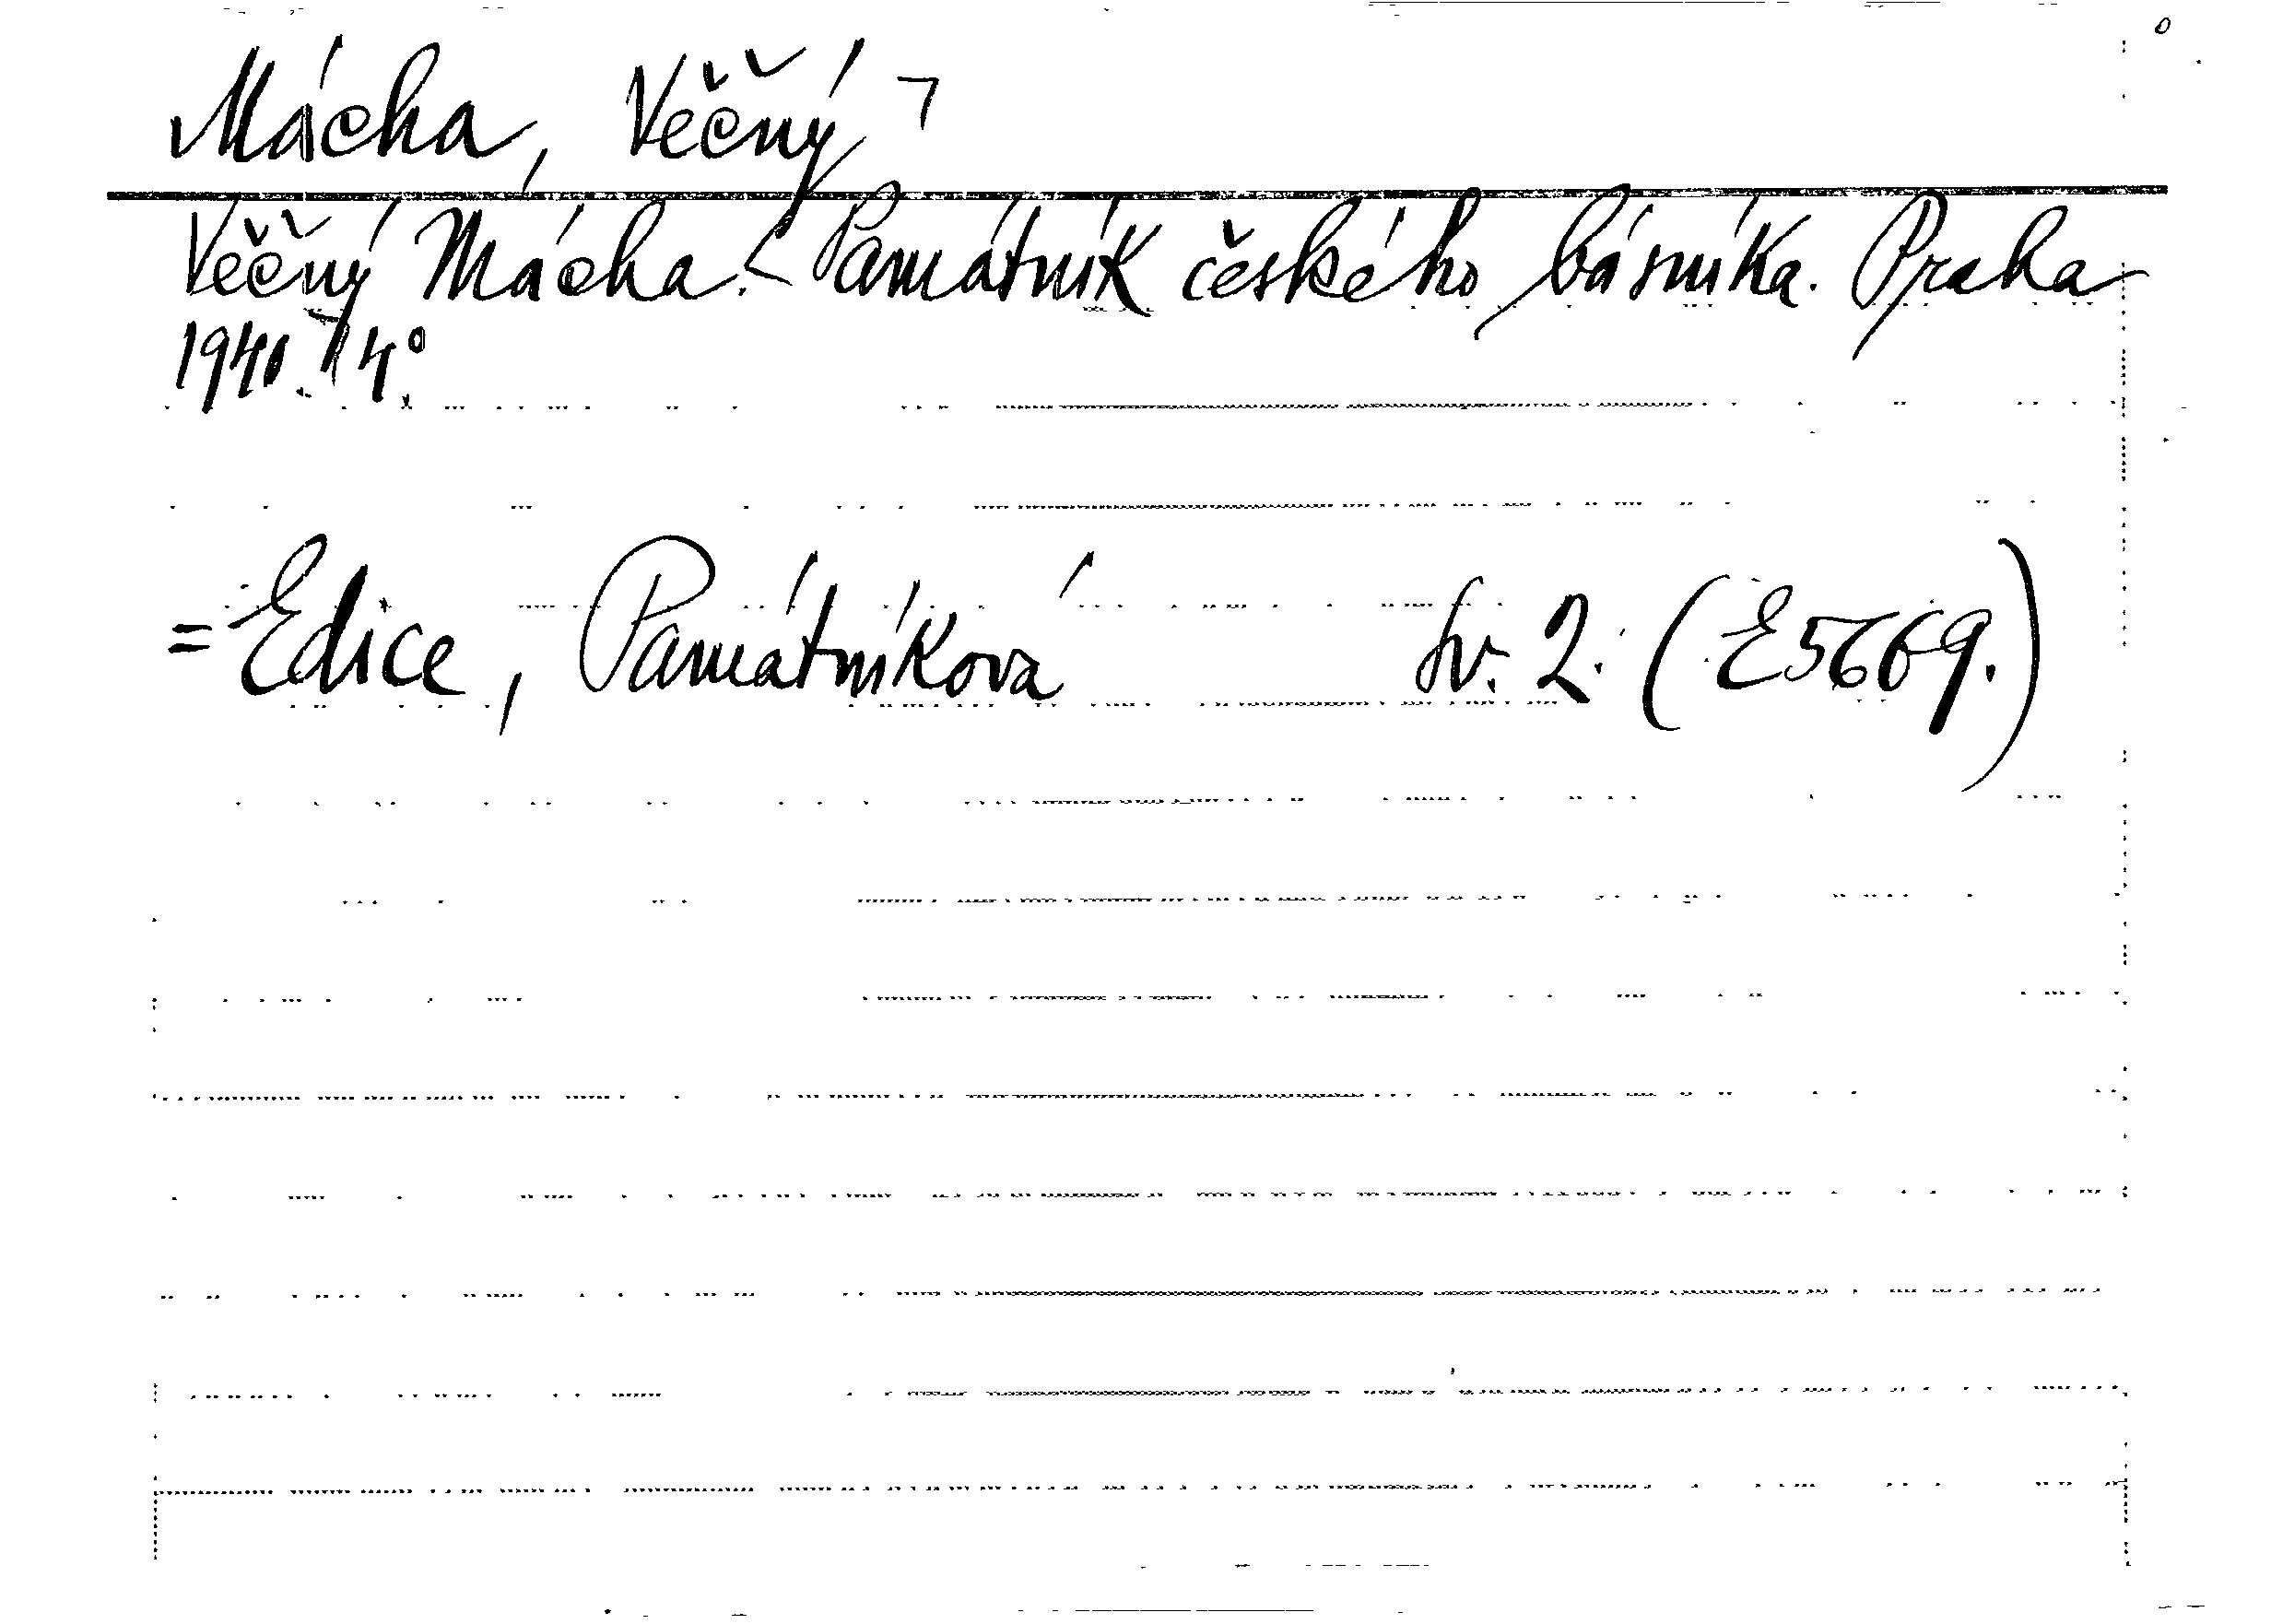 Mácha, Věčný ¬
Věčný Mácha. < Památník českého básníka. Praka
1940. 4°.
= Edice, Památníková Sv. 2. (E5669.)